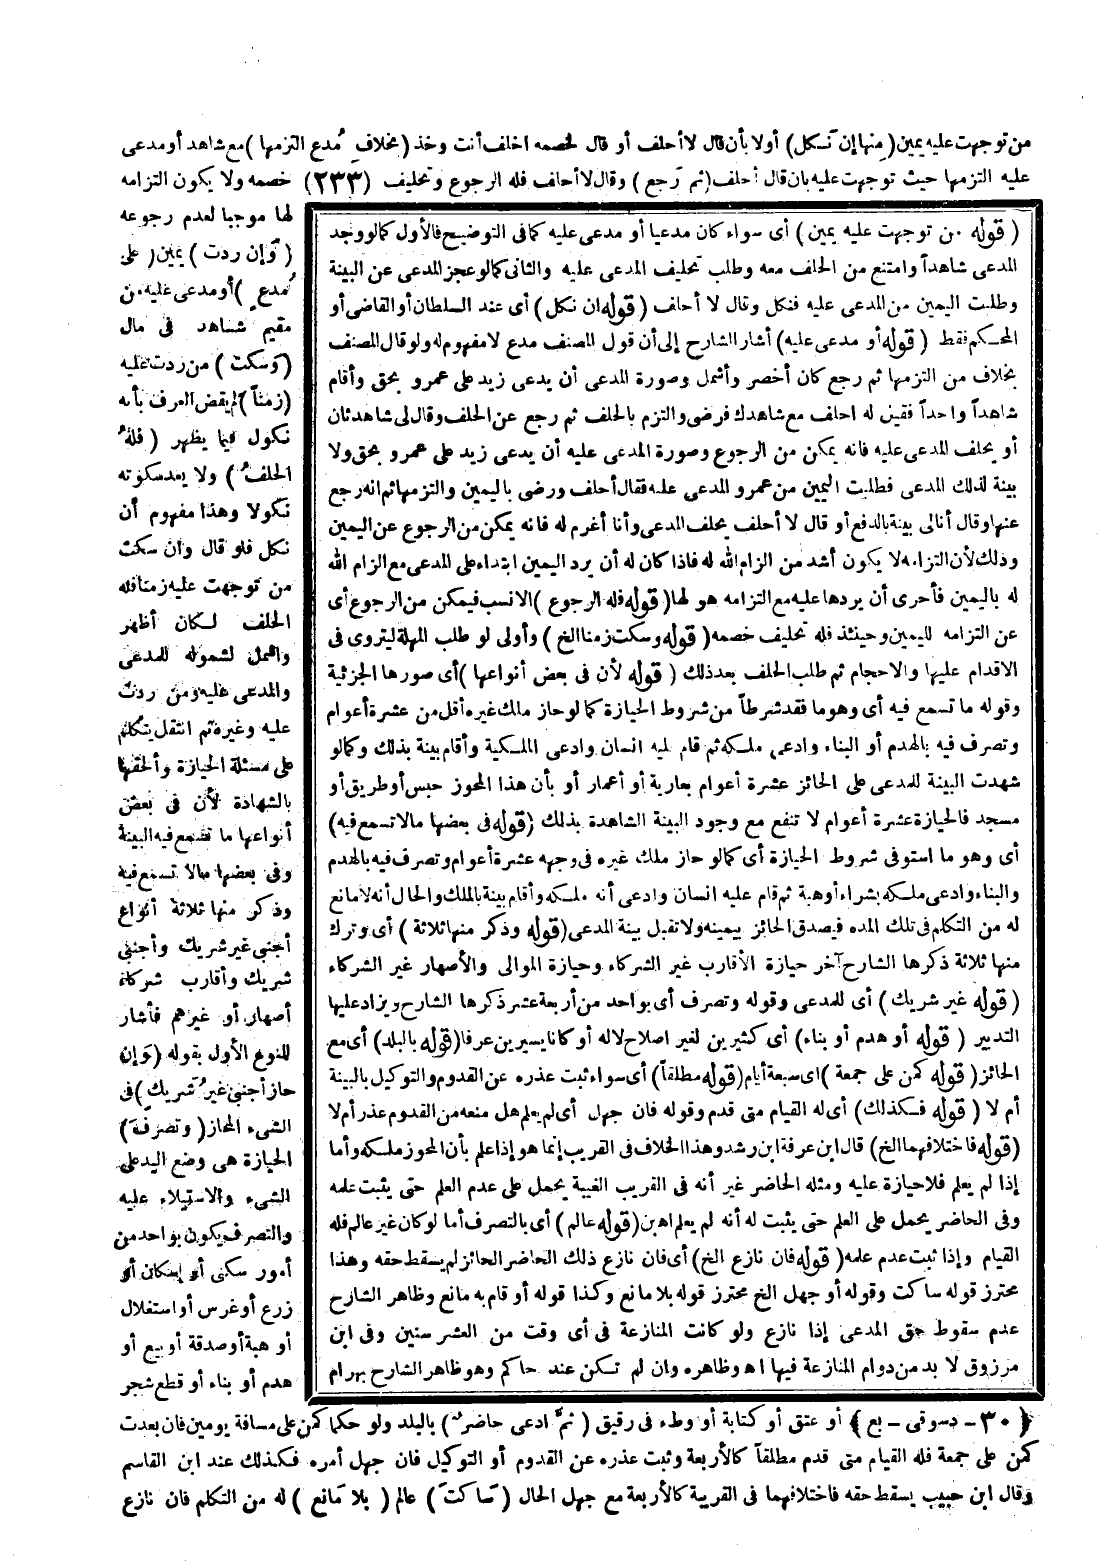 من توجهت عليه يمين (منها إن نكل) أولا بأن قال لا أحلف أو قال لخصمه احلف أنت وخذ (بخلاف مدع التزمها) مع شاهد أو مدعى
عليه التزمها حيث توجهت عليه بان قال أحلف (ثم رجع) وقال لا أحلف فله الرجوع وتحليف (٢٣٣) خصمه ولا يكون التزامه
لها موجبا لعدم رجوعه
(وإن ردت) يمين (على
مدع) أو مدعى عليه من
مقيم شاهد فى مال
(وسكت) من ردت عليه
(زمنا) لم يقض العرف بأنه
نكول فيما يظهر (فله
الحلف) ولا يعد سكوته
نكولا وهذا مفهوم أن
نكل فلو قال وان سكت
من توجهت عليه زمنا فله
الحلف لكان أظهر
وأشمل لشموله للمدعى
والمدعى عليه ومن ردت
عليه وغيره ثم انتقل يتكلم
على مسئلة الحيازة وألحقها
بالشهادة لأن فى بعض
أنواعها ما تسمع فيه البينة
وفى بعضها مالا تسمع فيه
وذكر منها ثلاثة أنواع
أجنبى غير شريك وأجنبى
شريك وأقارب شركاء
أصهار أو غيرهم فأشار
للنوع الأول بقوله (وإن
حاز أجنبى غير شريك) فى
الشىء المحاز (وتصرف)
الحيازة هى وضع اليد على
الشىء والاستيلاء عليه
والتصرف يكون بواحد من
أمور سكنى أو إسكان أو
زرع أو غرس أو استغلال
أو هبة أو صدقة أو بيع أو
هدم أو بناء أو قطع شجر
(قوله من توجهت عليه يمين) أى سواء كان مدعيا أو مدعى عليه كما فى التوضيح فالأول كما لو وجد
المدعى شاهداً وامتنع من الحلف معه وطلب تحليف المدعى عليه والثانى كما لو عجز المدعى عن البينة
وطلبت اليمين من المدعى عليه فنكل وقال لا أحلف (قوله ان نكل) أى عند السلطان أو القاضى أو
المحكم فقط (قوله أو مدعى عليه) أشار الشارح إلى أن قول المصنف مدع لا مفهوم له ولو قال المصنف
بخلاف من التزمها ثم رجع كان أخصر وأشمل وصورة المدعى أن يدعى زيد على عمرو بحق وأقام
شاهداً واحداً فقيل له احلف مع شاهدك فرضى والتزم بالحلف ثم رجع عن الحلف وقال لى شاهد ثان
أو يحلف المدعى عليه فانه يمكن من الرجوع وصورة المدعى عليه أن يدعى زيد على عمرو بحق ولا
بينة لذلك المدعى فطلبت اليمين من عمرو المدعى عليه فقال أحلف ورضى باليمين والتزمها ثم انه رجع
عنها وقال أنا لى بينة بالدفع أو قال لا أحلف يحلف المدعى وأنا أغرم له فانه يمكن من الرجوع عن اليمين
وذلك لأن التزامه لا يكون أشد من الزام الله له فاذا كان له أن يرد اليمين ابتداء على المدعى مع الزام الله
له باليمين فأحرى أن يردها عليه مع التزامه هو لها (قوله فله الرجوع) الانسب فيمكن من الرجوع أى
عن التزامه لليمين وحينئذ فله تحليف خصمه (قوله وسكت زمنا الخ) وأولى لو طلب المهلة ليتروى فى
الاقدام عليها والاحجام ثم طلب الحلف بعد ذلك (قوله لأن فى بعض أنواعها) أى صورها الجزئية
وقوله ما تسمع فيه أى وهو ما فقد شرطاً من شروط الحيازة كما لو حاز مالك غيره أقل من عشرة أعوام
وتصرف فيه بالهدم أو البناء وادعى ملكه ثم قام عليه انسان وادعى الملكية وأقام بينة بذلك وكما لو
شهدت البينة للمدعى على الحائز عشرة أعوام بعارية أو أعمار أو بأن هذا المحوز حبس أو طريق أو
مسجد فالحيازة عشرة أعوام لا تنفع مع وجود البينة الشاهدة بذلك (قوله فى بعضها مالا تسمع فيه)
أى وهو ما استوفى شروط الحيازة أى كما لو حاز ملك غيره فى وجهه عشرة أعوام وتصرف فيه بالهدم
والبناء وادعى ملكه بشراء أو هبة ثم قام عليه انسان وادعى أنه ملكه وأقام بينة بالملك والحال أنه لا مانع
له من التكلم فى تلك المده فيصدق الحائز بيمينه ولا تقبل بينة المدعى (قوله وذكر منها ثلاثة) أى وترك
منها ثلاثة ذكرها الشارح آخر حيازة الأقارب غير الشركاء وحيازة الموالى والأصهار غير الشركاء
(قوله غير شريك) أى للمدعى وقوله وتصرف أى بواحد من أربعة عشر ذكرها الشارح ويزاد عليها
التدبير (قوله أو هدم أو بناء) أى كثيرين لغير اصلاح لا له أو كانا يسيرين عرفا (قوله بالبلد) أى مع
الحائز (قوله كمن على جمعة) اى سبعة أيام (قوله مطلقاً) أى سواء ثبت عذره عن القدوم والتوكيل بالبينة
أم لا (قوله فكذلك) أى له القيام متى قدم وقوله فان جهل أى لم يعلم هل منعه من القدوم عذر أم لا
(قوله فاختلافهما الخ) قال ابن عرفة ابن رشد وهذا الخلاف فى القريب إنما هو إذا علم بأن المحوز ملكه وأما
إذا لم يعلم فلا حيازة عليه ومثله الحاضر غير أنه فى القريب الغيبة يحمل على عدم العلم حتى يثبت علمه
وفى الحاضر يحمل على العلم حتى يثبت له أنه لم يعلم اه بن (قوله عالم) أى بالتصرف أما لو كان غير عالم فله
القيام وإذا ثبت عدم علمه (قوله فان نازع الخ) أى فان نازع ذلك الحاضر الحائز لم يسقط حقه وهذا
محترز قوله ساكت وقوله أو جهل الخ محترز قوله بلا مانع وكذا قوله أو قام به مانع وظاهر الشارح
عدم سقوط حق المدعى إذا نازع ولو كانت المنازعة فى أى وقت من العشر سنين وفى ابن
مرزوق لا بد من دوام المنازعة فيها اه وظاهره وان لم تكن عند حاكم وهو ظاهر الشارح بهرام
(٣٠ - دسوقى - بع) أو عتق أو كتابة أو وطء فى رقيق (ثم ادعى حاضر) بالبلد ولو حكما كمن على مسافة يومين فان بعدت
كمن على جمعة فله القيام متى قدم مطلقاً كالأربعة وثبت عذره عن القدوم أو التوكيل فان جهل أمره فكذلك عند ابن القاسم
وقال ابن حبيب يسقط حقه فاختلافهما فى القريبة كالأربعة مع جهل الحال (ساكت) عالم (بلا مانع) له من التكلم فان نازع